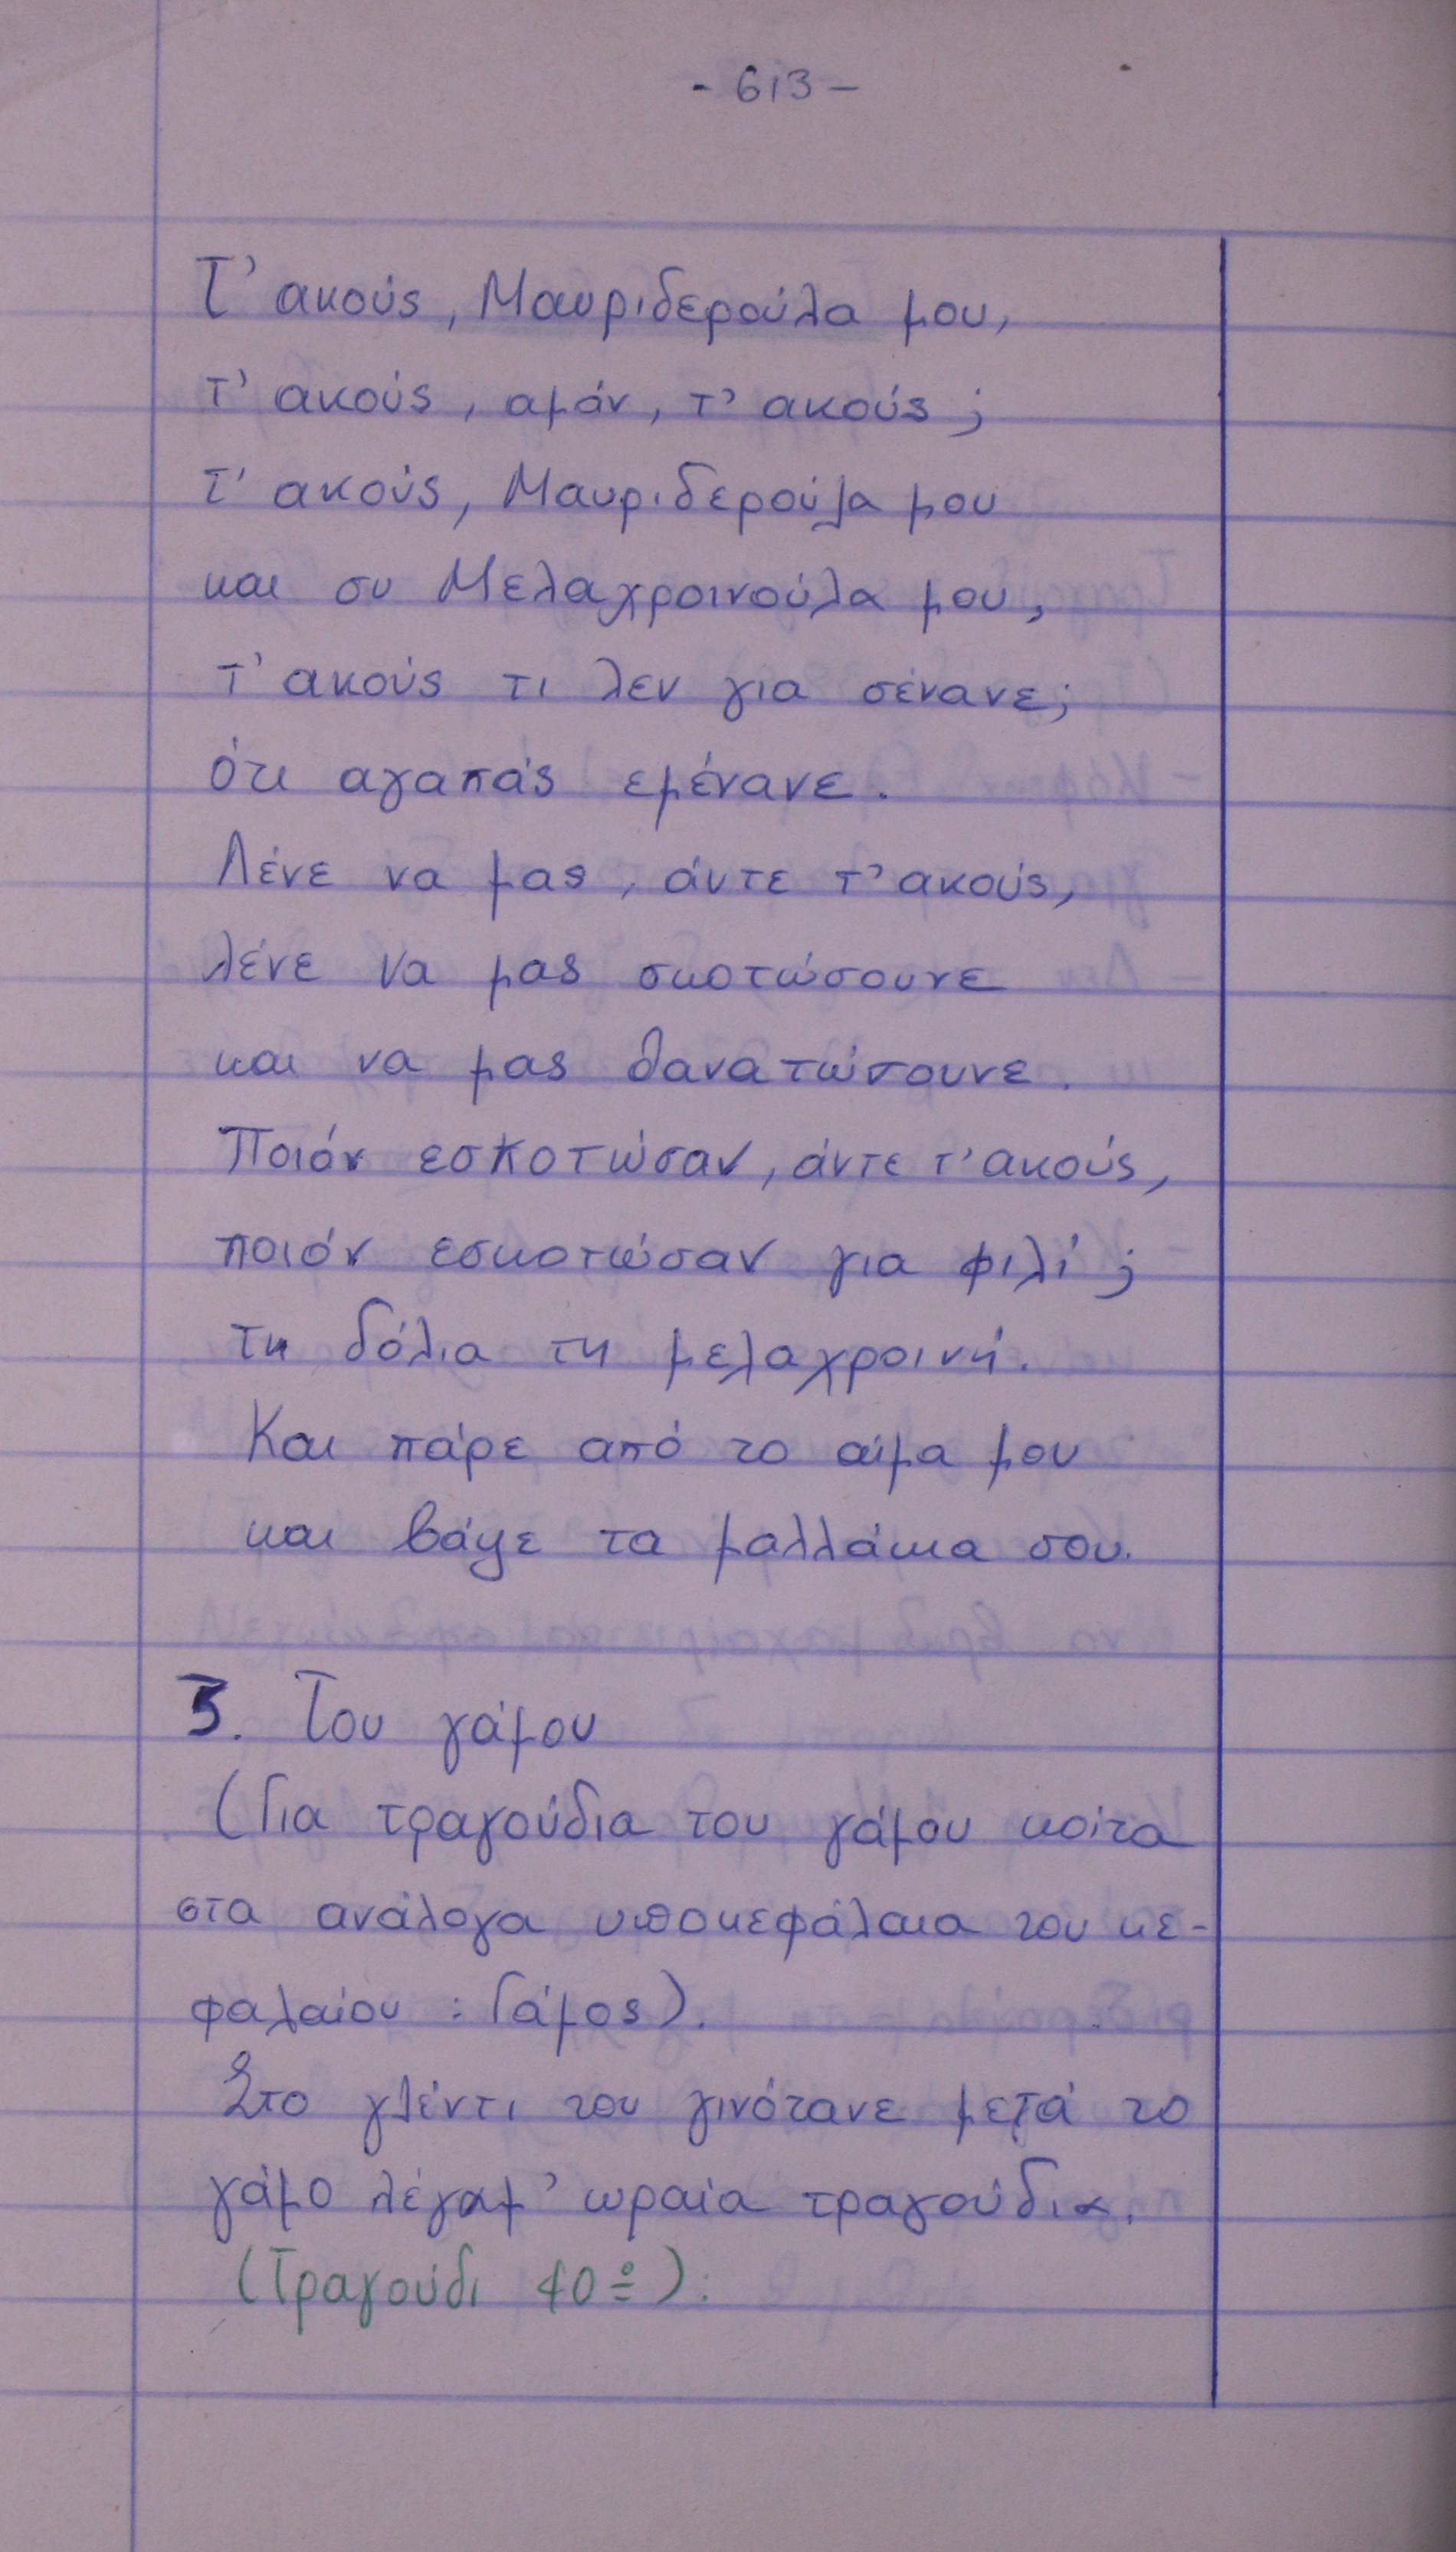 - 613 -
Τ' ακούς, Μαυριδερούλα μου,
τ' ακούς, αμάν, τ' ακούς;
τ' ακούς, Μαυριδερούλα μου
και συ Μελαχροινούλα μου,
τ' ακούς τι λεν για σένανε;
ότι αγαπάς εμένανε.
Λένε να μας, άντε τ' ακούς,
λένε να μας σκοτώσουνε
και να μας θανατώσουνε.
Ποιόν εσκοτώσαν, άντε τ' ακούς,
ποιόν εσκοτώσαν για φιλί;
τη δόλια τη μελαχροινή.
Και πάρε από το αίμα μου
και βάψε τα μαλλάκια σου.
3. Του γάμου
(Για τραγούδια του γάμου κοίτα
στα ανάλογα υποκεφάλαια του κε-
φαλαίου : Γάμος).
Στο γλέντι του γινότανε μετά το
γάμο λέγαμ' ωραία τραγούδια.
(Τραγούδι 40º):